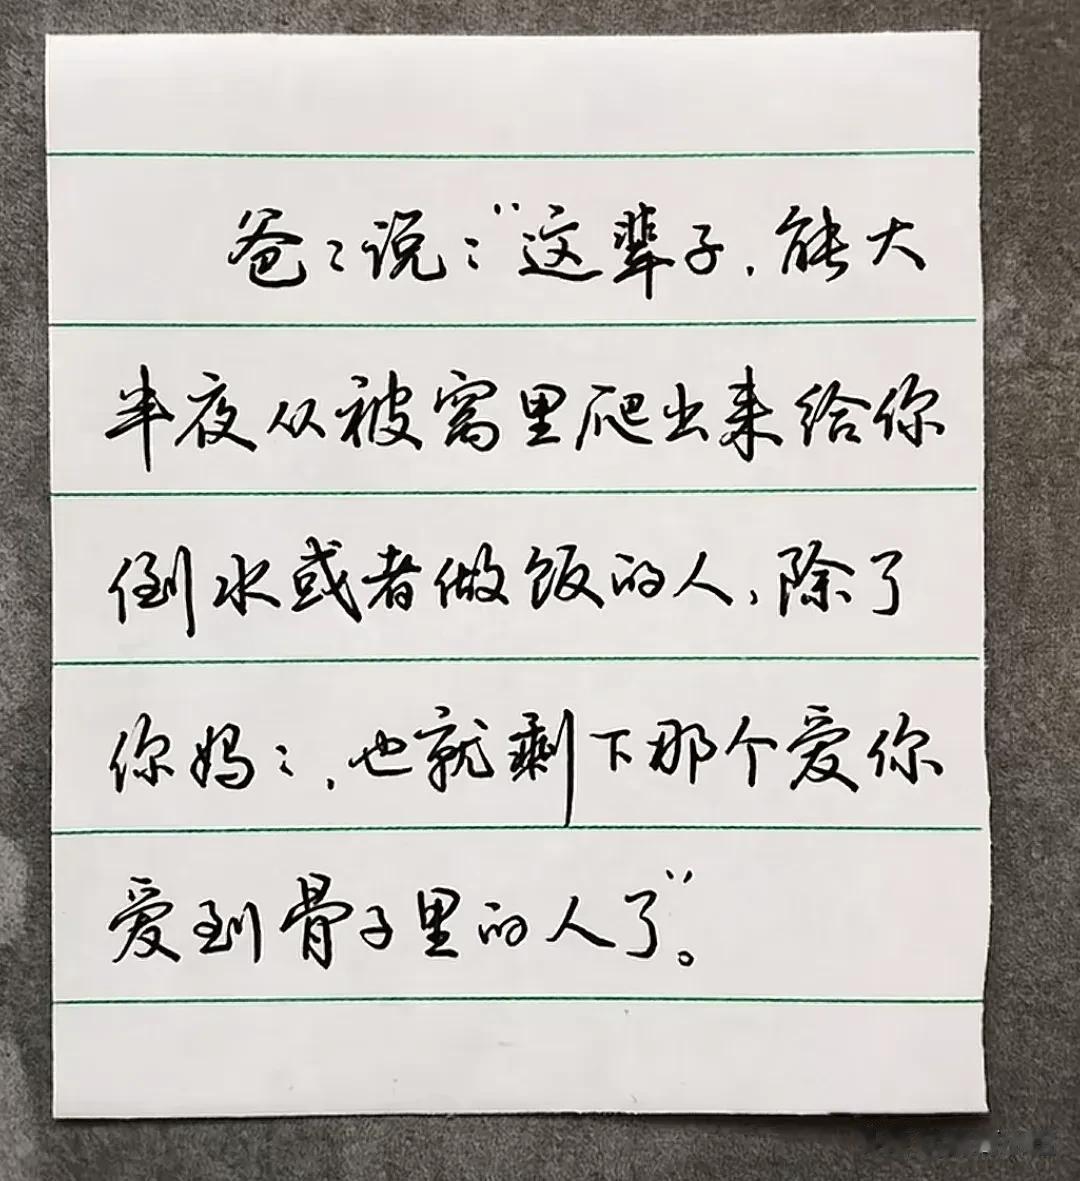 爸々说："这辈子,能大
半夜从被窝里爬出来给你
倒水或者做饭的人,除了
你妈々,也就剩下那个爱你
爱到骨子里的人了"。